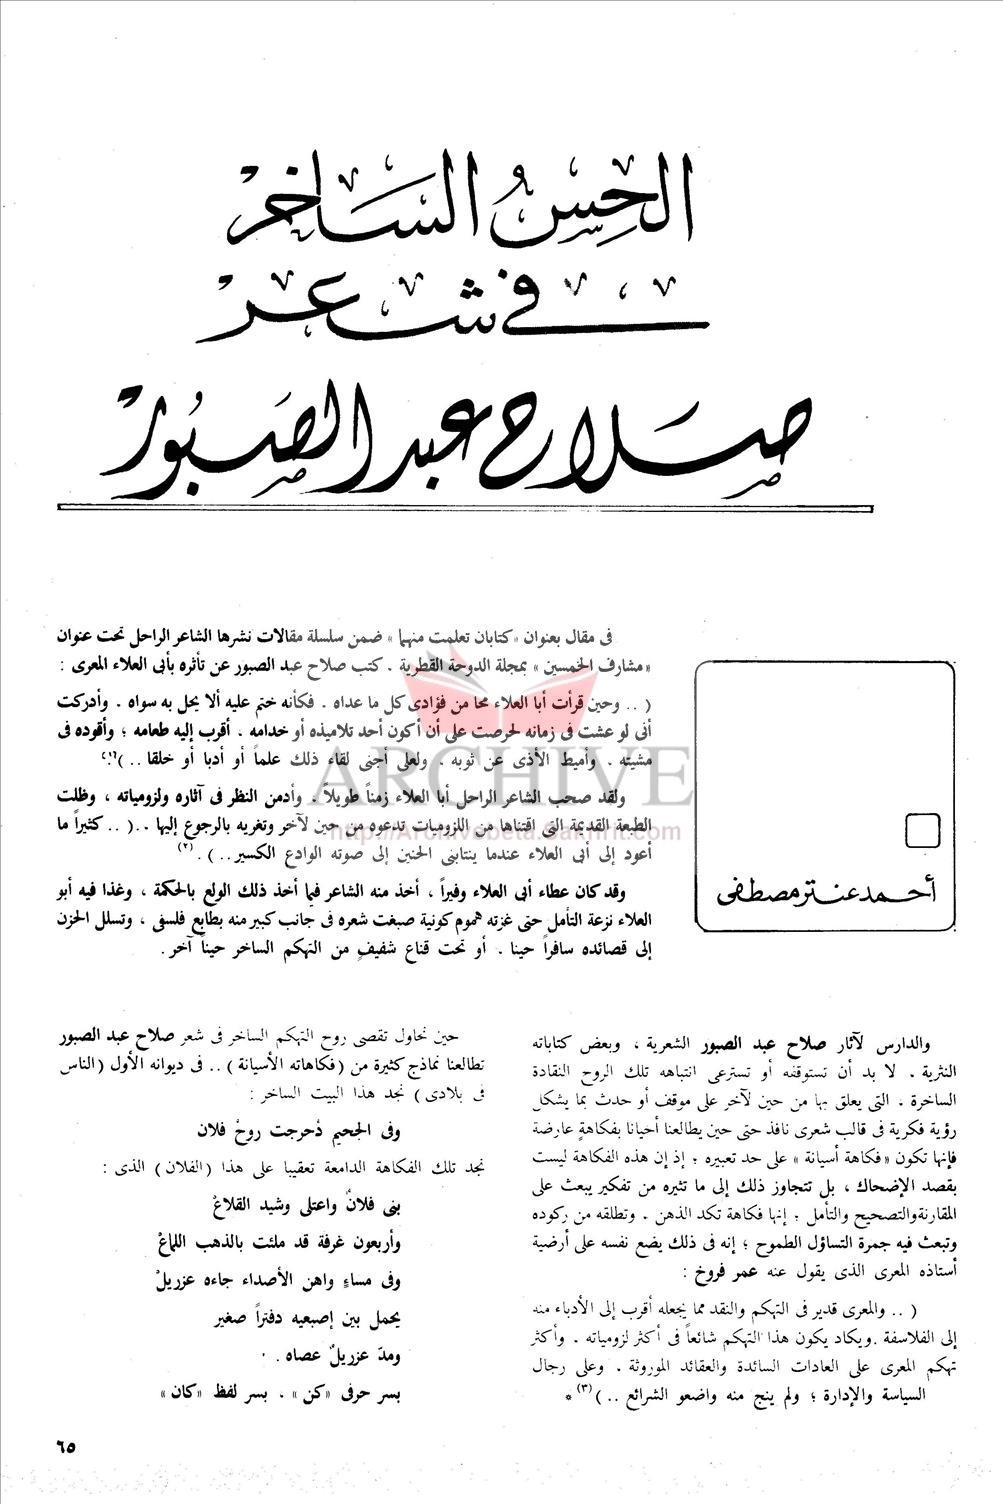 الحِسُ السَاخر
في شعر
صَلاح عبد الصَبُور
فى مقال بعنوان «كتابان تعلمت منهما» ضمن سلسلة مقالات نشرها الشاعر الراحل تحت عنوان
«مشارف الخمسين» بمجلة الدوحة القطرية . كتب صلاح عبد الصبور عن تأثره بأبى العلاء المعرى :
( .. وحين قرأت أبا العلاء محا من فؤادى كل ما عداه . فكأنه ختم عليه ألا يحل به سواه . وأدركت
أنى لو عشت فى زمانه لحرصت على أن أكون أحد تلاميذه أو خدامه . أقرب إليه طعامه ؛ وأقوده فى
مشيته . وأميط الأذى عن ثوبه . ولعلى أجنى لقاء ذلك علماً أو أدبا أو خلقا .. )(١)
ولقد صحب الشاعر الراحل أبا العلاء زمناً طويلاً . وأدمن النظر فى آثاره ولزومياته ، وظلت
الطبعة القديمة التى اقتناها من اللزوميات تدعوه من حين لآخر وتغريه بالرجوع إليها ..( .. كثيراً ما
أعود إلى أبى العلاء عندما ينتابنى الحنين إلى صوته الوادع الكسير .. ) . (٢)
وقد كان عطاء أبى العلاء وفيراً ، أخذ منه الشاعر فيما أخذ ذلك الولع بالحكمة ، وغذا فيه أبو
العلاء نزعة التأمل حتى غزته هموم كونية صبغت شعره فى جانب كبير منه بطابع فلسفى ، وتسلل الحزن
إلى قصائده سافراً حينا . أو تحت قناع شفيفٍ من التهكم الساخر حيناً آخر .
أحمد عنتر مصطفى
ARCHIVE
http://Archivebeta.Sakhrit.com
والدارس لآثار صلاح عبد الصبور الشعرية ، وبعض كتاباته
النثرية . لا بد أن تستوقفه أو تسترعى انتباهه تلك الروح النقادة
الساخرة . التى يعلق بها من حين لآخر على موقف أو حدث بما يشكل
رؤية فكرية فى قالب شعرى نافذ حتى حين يطالعنا أحيانا بفكاهةٍ عارضة
فإنها تكون «فكاهة أسيانة» على حد تعبيره ؛ إذ إن هذه الفكاهة ليست
بقصد الإضحاك ، بل تتجاوز ذلك إلى ما تثيره من تفكير يبعث على
المقارنة والتصحيح والتأمل ؛ إنها فكاهة تكد الذهن . وتطلقه من ركوده
وتبعث فيه جمرة التساؤل الطموح ؛ إنه فى ذلك يضع نفسه على أرضية
أستاذه المعرى الذى يقول عنه عمر فروخ :
( .. والمعرى قدير فى التهكم والنقد مما يجعله أقرب إلى الأدباء منه
إلى الفلاسفة . ويكاد يكون هذا التهكم شائعاً فى أكثر لزومياته . وأكثر
تهكم المعرى على العادات السائدة والعقائد الموروثة . وعلى رجال
السياسة والإدارة ؛ ولم ينج منه واضعو الشرائع .. )(٣) *
حين نحاول تقصى روح التهكم الساخر فى شعر صلاح عبد الصبور
تطالعنا نماذج كثيرة من (فكاهاته الأسيانة) .. فى ديوانه الأول (الناس
فى بلادى) نجد هذا البيت الساخر :
وفى الجحيم دُحرجت روحُ فلان
نجد تلك الفكاهة الدامعة تعقيبا على هذا (الفلان) الذى :
بنى فلانٌ واعتلى وشيد القلاعْ
وأربعون غرفة قد ملئت بالذهب اللماعْ
وفى مساءٍ واهن الأصداء جاءه عزريلْ
يحمل بين إصبعيه دفتراً صغير
ومدَ عزريلُ عصاه .
بسر حرفى «كن» ، بسر لفظ «كان»
٦٥